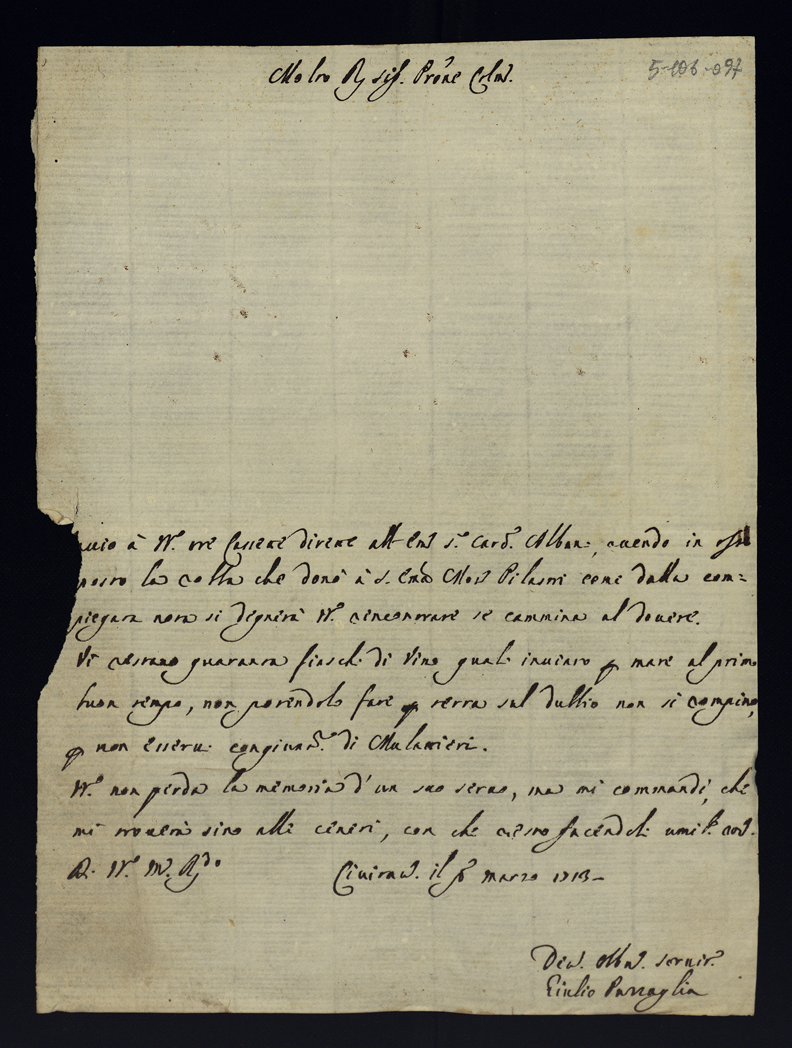 5-106-097
Molto Rdo sig. Prōne Colmo.
à V.S. tre Cassette dirette all' Emo S.r Card. Albani, avendo in
posto la cotta che donò à S. Em.a Mons. Pilastri come dalla com=
piegata nota si degnerà V.S. rincontrare se cammina al dovere.
Vi restano quaranta fiaschi di Vino quali inviarò p mare al primo
buon tempo, non potendolo fare p terra sul dubbio non si rompino,
p non esservi congiunt.e di Mulattieri.
V.S. non perda la memoria d' un suo servo, ma mi commandi, che
mi troverà sino alle ceneri, con che resto facendole umil.
D. V.S. M. Rdo Civitan. il p marzo 1713
Devo. Obbmo. servit.e
Giulio Pattaglia